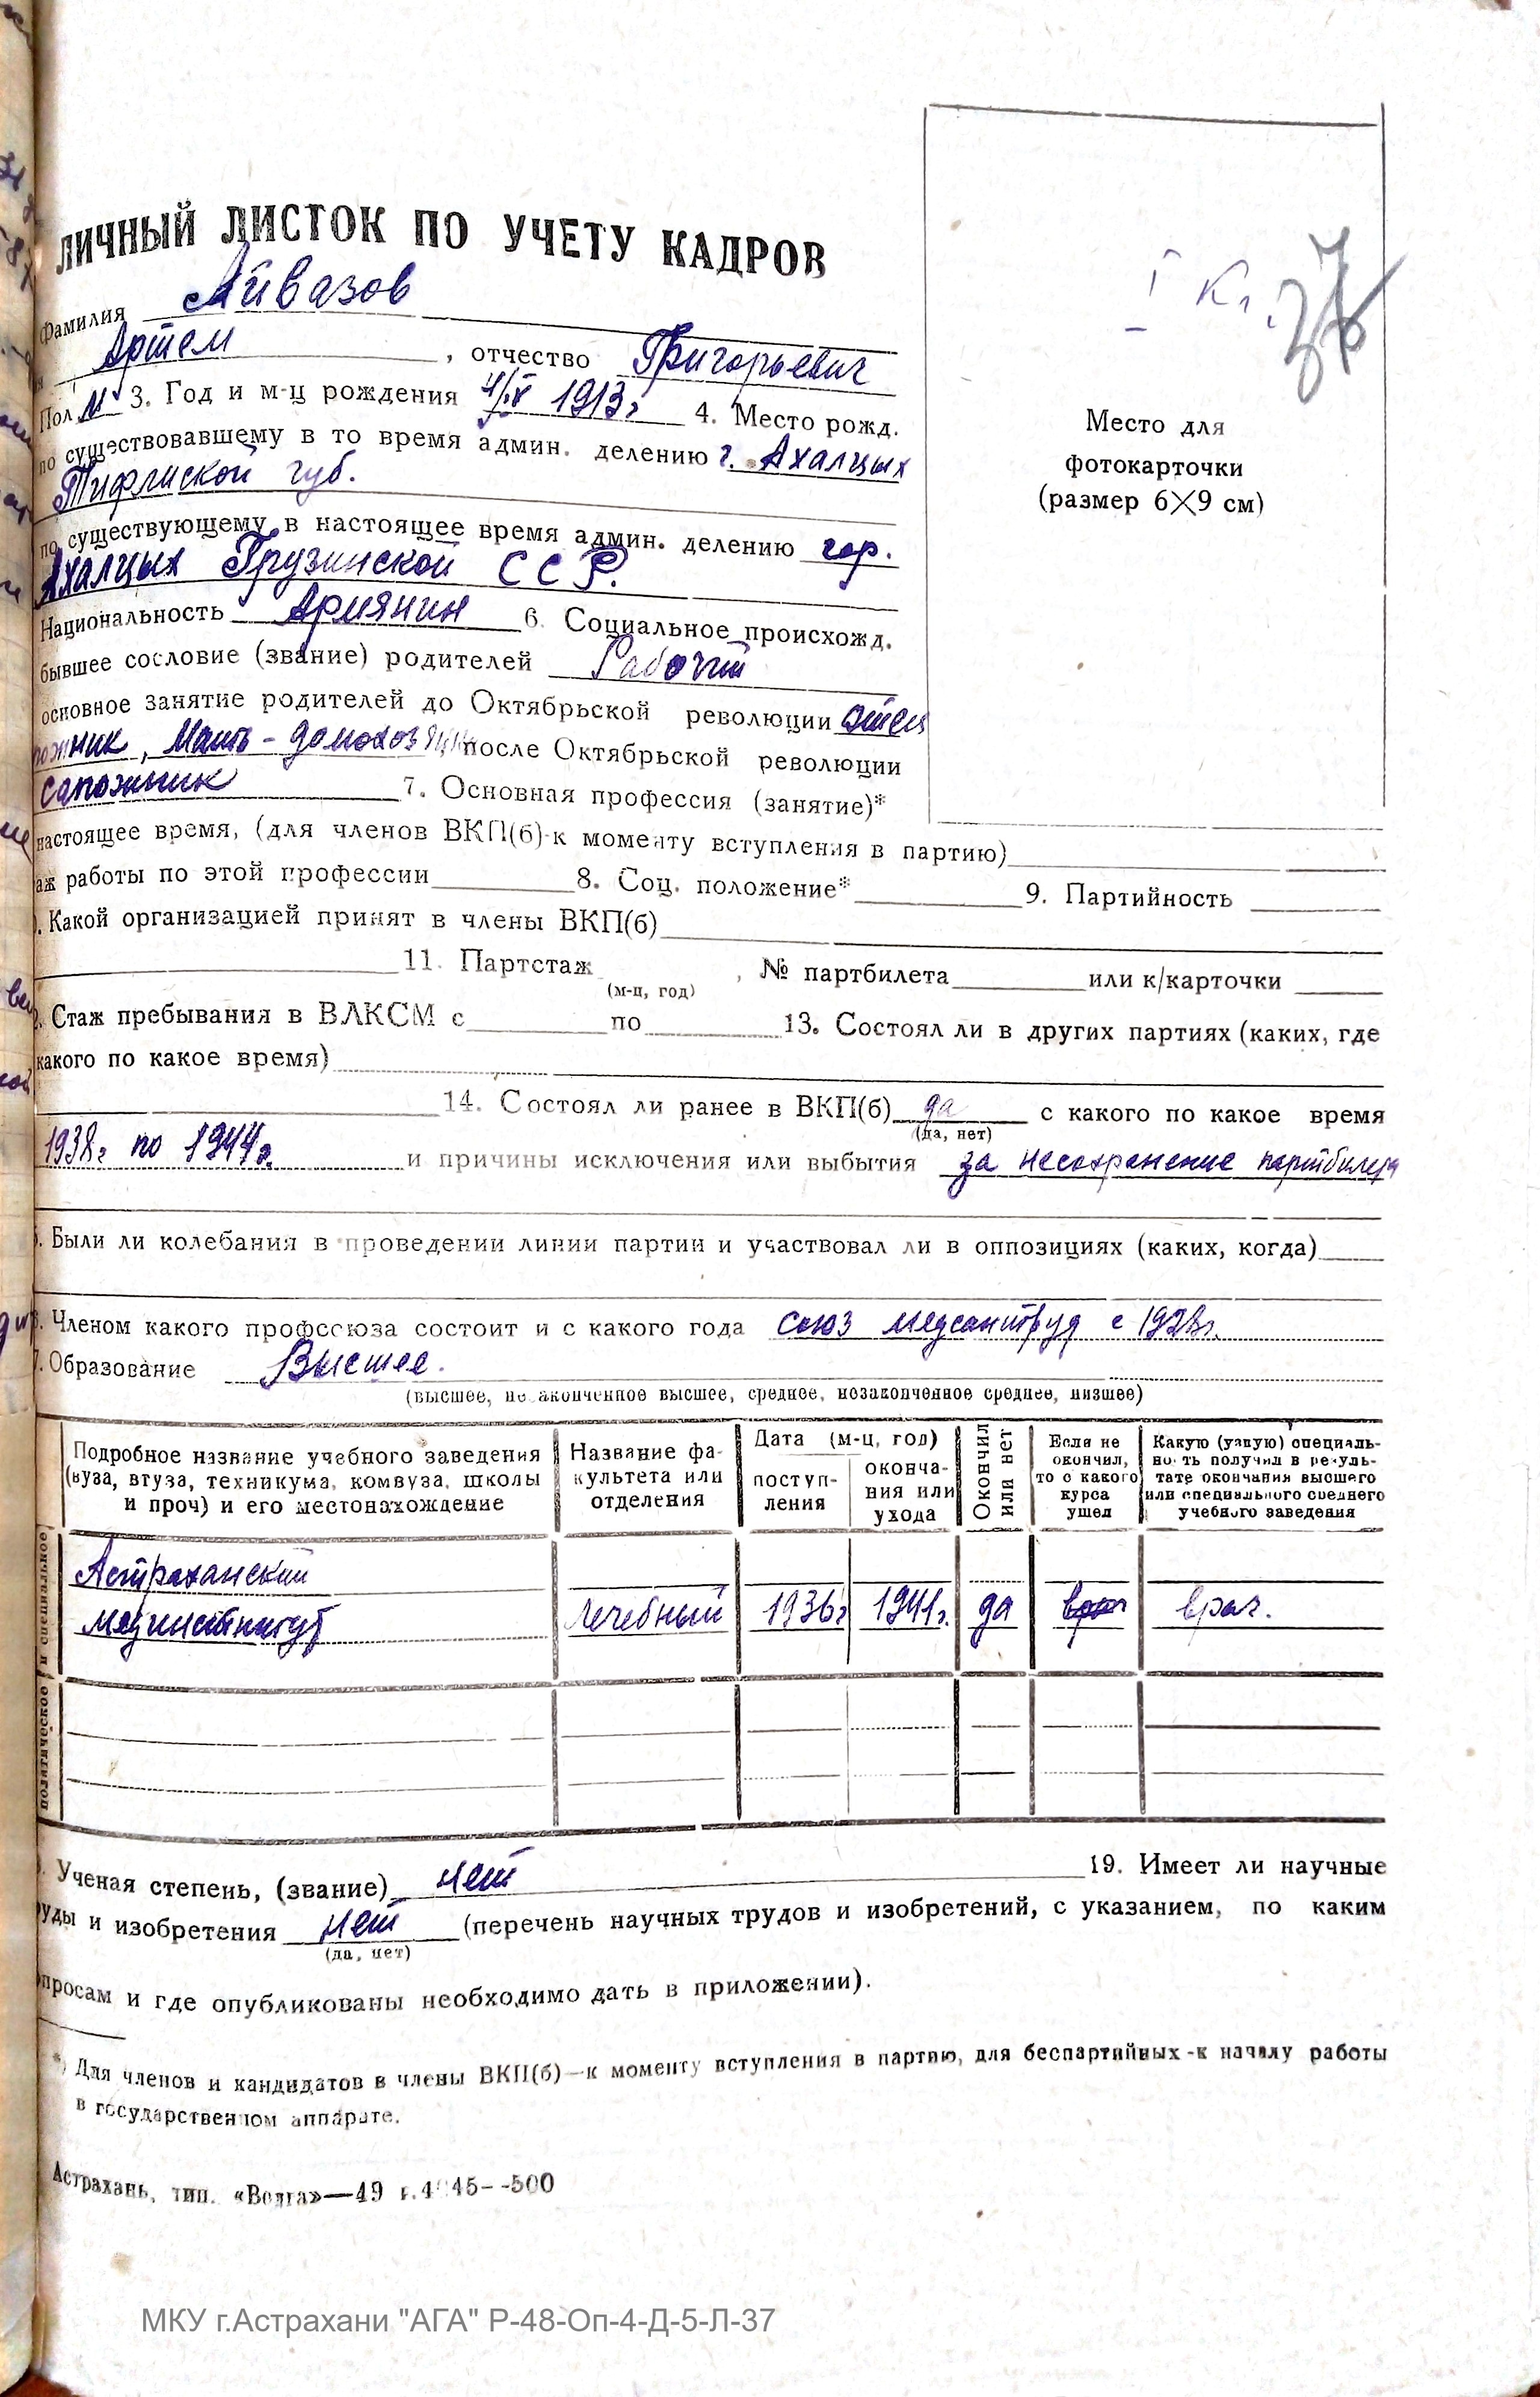 ЛИЧНЫЙ ЛИСТОК ПО УЧЕТУ КАДРОВ
I Кл. 37
Фамилия Айвазов
Артем, отчество Григорьевич
Пол М 3. Год и м-ц рождения 1913г 4. Место рожд.
по существовавшему в то время админ. делению г. Ахалцых
Тифлиской губ.
по существующему в настоящее время админ. делению гор.
Ахалцых Грузинской ССР.
Национальность Армянин 6. Социальное происхожд.
бывшее сословие (звание) родителей Рабочий
основное занятие родителей до Октябрьской революции отец
ожник, Мать - домохозяйка после Октябрьской революции
сапожник 7. Основная профессия (занятие)*
настоящее время, (для членов ВКП(б)-к моменту вступления в партию)
аж работы по этой профессии 8. Соц. положение* 9. Партийность
. Какой организацией принят в члены ВКП(б)
11. Партстаж , № партбилета или к/карточки
(м-ц, год)
. Стаж пребывания в ВЛКСМ с по 13. Состоял ли в других партиях (каких, где
какого по какое время)
14. Состоял ли ранее в ВКП(б) да с какого по какое время
(да, нет)
1938г по 1944г. и причины исключения или выбытия за несохранение партбилета
. Были ли колебания в проведении линии партии и участвовал ли в оппозициях (каких, когда)
. Членом какого профсоюза состоит и с какого года союз медсантруд с 1928г.
. Образование Высшее.
(высшее, незаконченное высшее, среднее, незаконченное среднее, низшее)
Подробное название учебного заведения (вуза, втуза, техникума, комвуза, школы и проч) и его местонахождение
Название факультета или отделения
Дата (м-ц, год)
поступ-
ления
оконча-
ния или
ухода
Окончил или нет
Если не окончил, то с какого курса ушел
Какую (узкую) специаль-
ность получил в резуль-
тате окончания высшего
или специального среднего
учебного заведения
и специальное
Астраханский
мединститут лечебный 1936г 1941г. да врач.
политическое
Ученая степень, (звание) нет 19. Имеет ли научные
уды и изобретения нет (перечень научных трудов и изобретений, с указанием, по каким
(да, нет)
просам и где опубликованы необходимо дать в приложении).
*) Для членов и кандидатов в члены ВКП(б)—к моменту вступления в партию, для беспартийных-к началу работы
в государственном аппарате.
Астрахань, тип. «Волга»—49 г.
МКУ г.Астрахани "АГА" Р-48-Оп-4-Д-5-Л-37